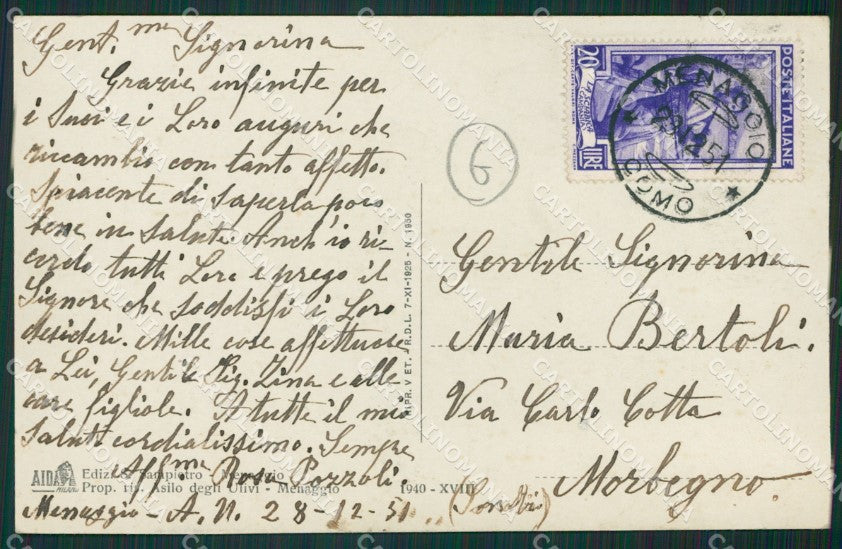 Gent.me Signorina
Grazie infinite per
i Suoi e i Loro auguri che
riccambio con tanto affetto.
Spiacente di saperla poco
bene in salute. Anch'io ri-
cordo tutti Loro e prego il
Signore che soddisfi i Loro
desideri. Mille cose affettuose
a Lei, Gentile Sig. Zina e alle
care figliole. A tutte il mio
saluto cordialissimo. Sempre
Aff.ma Rosa Pozzoli.
Menaggio - A. N. 28-12-51
AIDA
MILANO
Ediz. Sampietro - Menaggio
Prop. ris. Asilo degli Ulivi - Menaggio
1940 - XVIII
RIPR. V ET. - R.D.L. 7-XI-1925 - N. 1950
6
20
LIRE
POSTE ITALIANE
MENAGGIO
29.12.51
COMO
Gentile Signorina
Maria Bertoli.
Via Carlo Cotta
Morbegno.
(Sondrio)
CARTOLINOMANIA